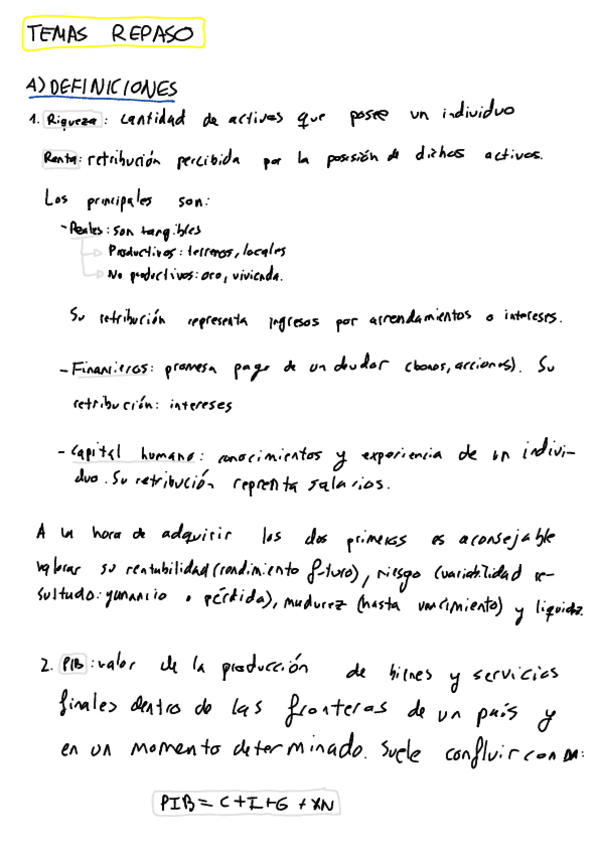 TEMAS REPASO
A) DEFINICIONES
1. Riqueza: cantidad de activos que posee un individuo
Renta: retribución percibida por la posisión de dichos activos.
Los principales son:
- Reales: son tangibles
Productivos: terrenos, locales
No productivos: oro, vivienda.
Su retribución representa ingresos por arrendamientos o intereses.
- Financieros: promesa pago de un deudor (bonos, acciones). Su
retribución: intereses
- Capital humano: conocimientos y experiencia de un indivi-
duo. Su retribución reprenta salarios.
A la hora de adquirir los dos primeros es aconsejable
valorar su rentabilidad (rendimiento futuro), riesgo (variabilidad re-
sultado: ganancia o pérdida), madurez (hasta vencimiento) y liquidez.
2. PIB: valor de la producción de bienes y servicios
finales dentro de las fronteras de un país y
en un momento determinado. Suele confluir con DA:
PIB = C + I + G + XN